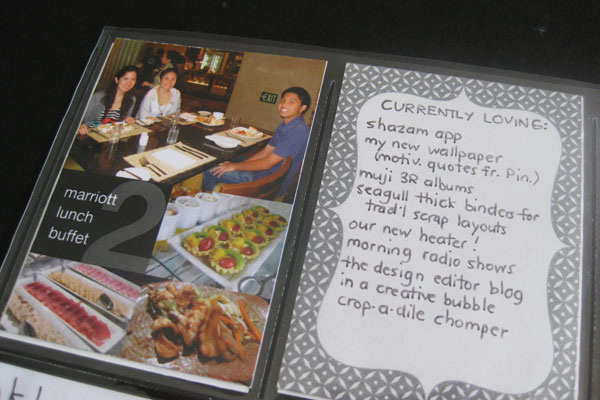 EXIT
2
marriott
lunch
buffet
CURRENTLY LOVING:
shazam app
my new wallpaper
(motiv. quotes fr. Pin.)
muji 3R albums
seagull thick binders for
trad'l scrap layouts
our new heater!
morning radio shows
the design editor blog
in a creative bubble
crop.a.dile chomper